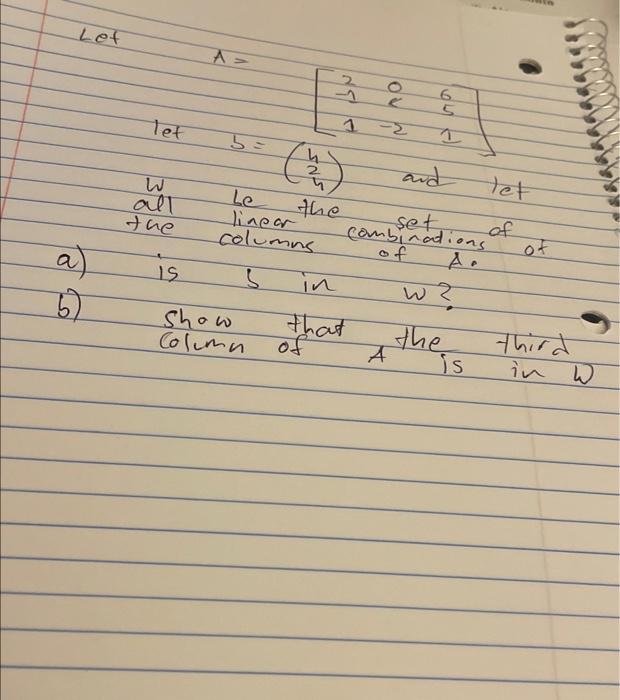 Let
A =
2 0 6
-1 5
1 -2 1
let b = (4 2 4) and let
W be the set of
all linear combinations of
the columns of A.
a) is b in W?
b) show that the third
column of A is in W